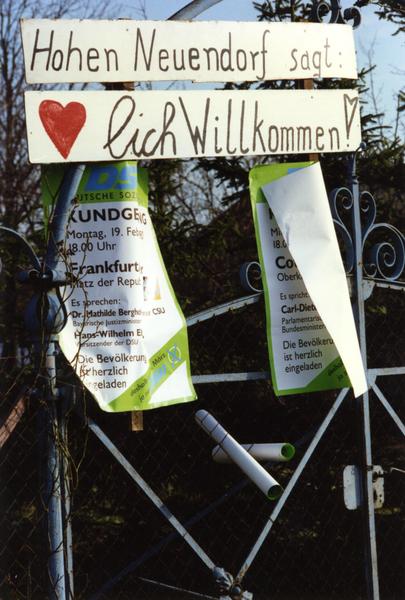 Hohen Neuendorf sagt:
lich Willkommen!
DS
UTSCHE SOZ
KUNDGE
Montag, 19. Feb
18.00 Uhr
Frankfurt
latz der Repu
Es sprechen:
Dr. Mathilde Bergho CSU
Bayerische Justizminister
Hans-Wilhelm E
Vorsitzender der DSU
Die Bevölkerung
ist herzlich
eingeladen
18.
Co
Oberk
Es spricht
Carl-Diet
Parlamentari
Bundesminister
Die Bevölkerung
ist herzlich
eingeladen